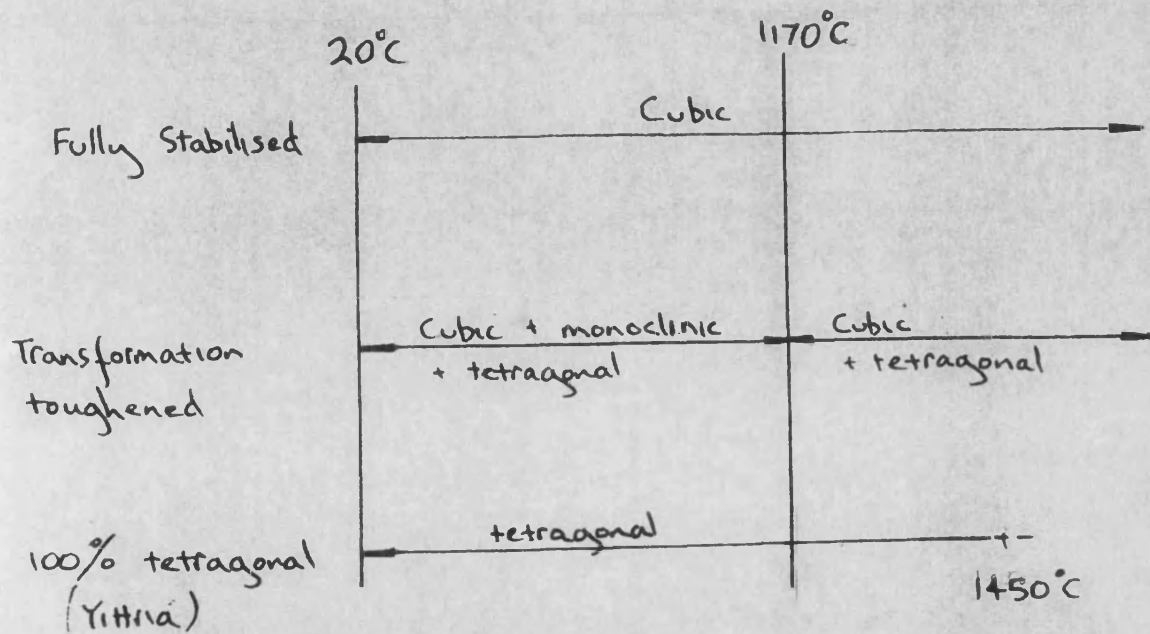 20°C
1170°C
Fully Stabilised
Cubic
Transformation
toughened
Cubic + monoclinic
+ tetraagonal
Cubic
+ tetragonal
100% tetragonal
(Yittria)
tetragonal
1450°C